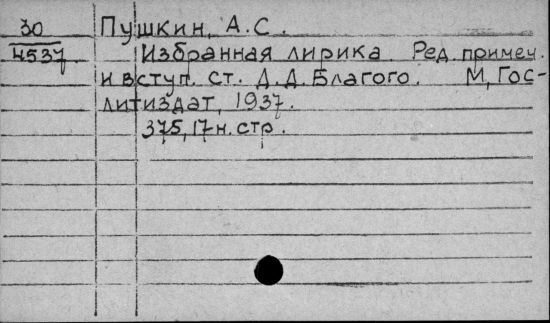 30 Пушкин, А.С.
4537 Избранная лирика. Ред. примеч.
и вступ. ст. Д.Д. Благого. М, Гос-
литиздат, 1937.
375, 17 н. стр.